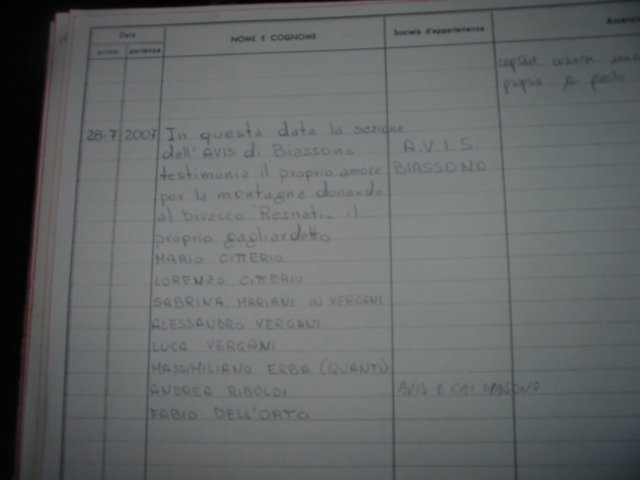 Data
NOME E COGNOME
Società d'appartenenza
arrivo partenza
28-7 2007 In questa data la sezione
dell'AVIS di Biassono
A.V.I.S
testimonia il proprio amore
BIASSONO
per la montagna donando
al bivacco "Rosnati" il
proprio gagliardetto
MARIO CITTERIO
LORENZO CITTERIO
SABRINA MARIANI IN VERGANI
ALESSANDRO VERGANI
LUCA VERGANI
MASSIMILIANO ERBA (QUANTO)
ANDREA RIBOLDI AVIS E CAI
FABIO DELL'ORTO